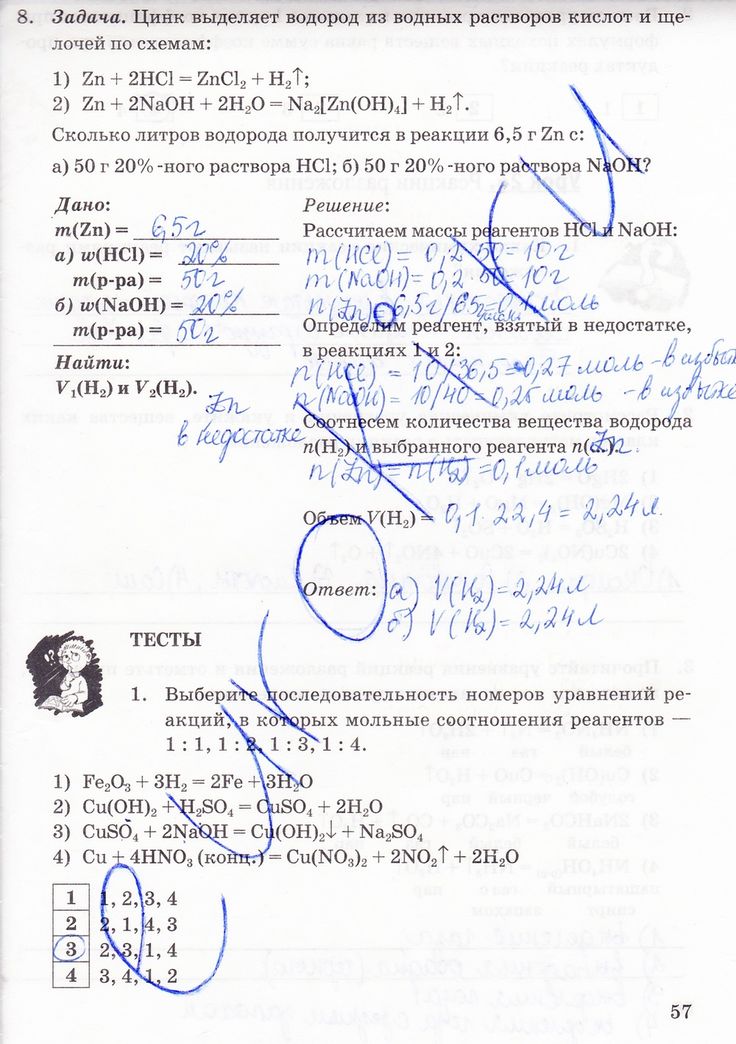 8. Задача. Цинк выделяет водород из водных растворов кислот и ще-
лочей по схемам:
1) Zn + 2HCl = ZnCl₂ + H₂↑;
2) Zn + 2NaOH + 2H₂O = Na₂[Zn(OH)₄] + H₂↑.
Сколько литров водорода получится в реакции 6,5 г Zn с:
а) 50 г 20%-ного раствора HCl; б) 50 г 20%-ного раствора NaOH?
Дано:
m(Zn) = 6,5 г
а) w(HCl) = 20%
m(р-ра) = 50 г
б) w(NaOH) = 20%
m(р-ра) = 50 г
Найти:
V₁(H₂) и V₂(H₂).
Zn
в недостатке
Решение:
Рассчитаем массы реагентов HCl и NaOH:
m(HCl) = 0,2·50 = 10 г
m(NaOH) = 0,2·50 = 10 г
n(Zn) = 6,5 г/65 г/моль = 0,1 моль
Определим реагент, взятый в недостатке,
в реакциях 1 и 2:
n(HCl) = 10/36,5 = 0,27 моль - в избыт
n(NaOH) = 10/40 = 0,25 моль - в избытке
Соотнесем количества вещества водорода
n(H₂) и выбранного реагента n(...) Zn.
n(Zn) = n(H₂) = 0,1 моль
Объем V(H₂) = 0,1·22,4 = 2,24 л.
Ответ: а) V(H₂) = 2,24 л
б) V(H₂) = 2,24 л
ГДЗ
ТЕСТЫ
1. Выберите последовательность номеров уравнений ре-
акций, в которых мольные соотношения реагентов —
1 : 1, 1 : 2, 1 : 3, 1 : 4.
1) Fe₂O₃ + 3H₂ = 2Fe + 3H₂O
2) Cu(OH)₂ + H₂SO₄ = CuSO₄ + 2H₂O
3) CuSO₄ + 2NaOH = Cu(OH)₂↓ + Na₂SO₄
4) Cu + 4HNO₃ (конц.) = Cu(NO₃)₂ + 2NO₂↑ + 2H₂O
1 1, 2, 3, 4
2 2, 1, 4, 3
3 2, 3, 1, 4
4 3, 4, 1, 2
57